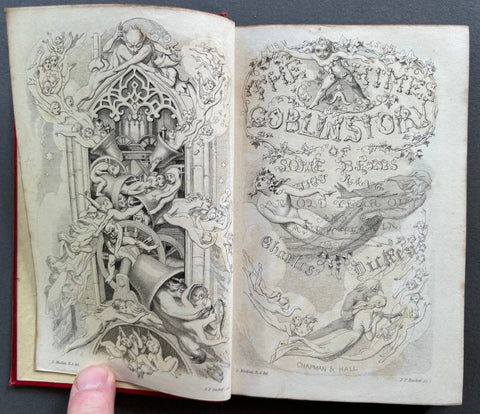 D. Maclise, R.A. del.
THE CHIMES
A
GOBLIN STORY
OF
SOME BELLS
THAT RANG
AN OLD YEAR OUT
AND A NEW
Charles Dickens
D. Maclise, R.A. del.
CHAPMAN & HALL